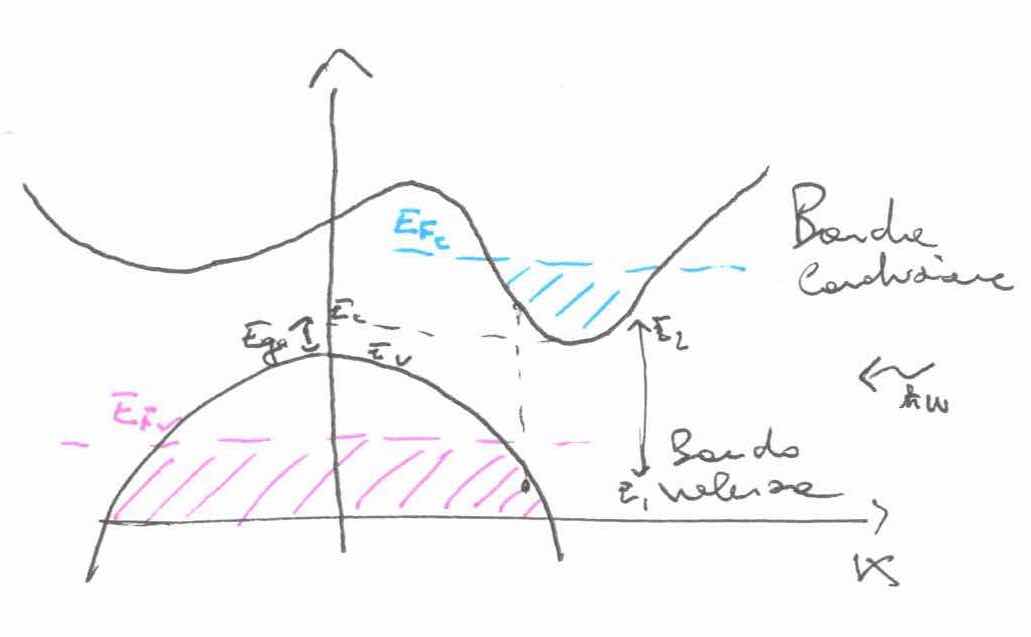 E_Fc
Banda
Conduzione
E_c
E_gap
E_v
E_2
ħω
E_Fv
Banda
E_1 Valenza
K